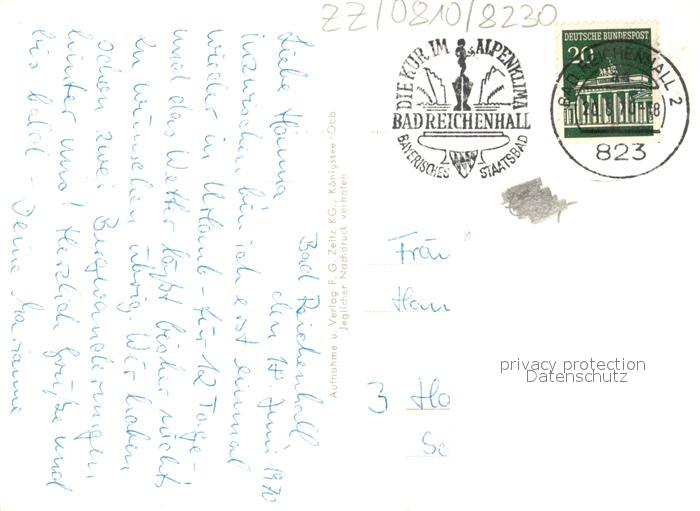 ZZ/0810/8230
DEUTSCHE BUNDESPOST
20
DIE KUR IM ALPENKLIMA
BAD REICHENHALL
BAYERISCHES STAATSBAD
BAD REICHENHALL 2
823
Bad Reichenhall
den 18. Juni 1970
Liebe Hanna,
inzwischen bin ich erst einmal
wieder in Urlaub - für 12 Tage -
und das Wetter läßt bisher nichts
zu wünschen übrig. Wir haben
schon zwei Bergwanderungen
hinter uns! Herzlich Grüße und
bis bald - Deine Marianne
Aufnahme u. Verlag F. G. Zeitz KG., Königssee/Obb.
Jeglicher Nachdruck verboten
Frau
Han
3 Ho
Se
privacy protection
Datenschutz